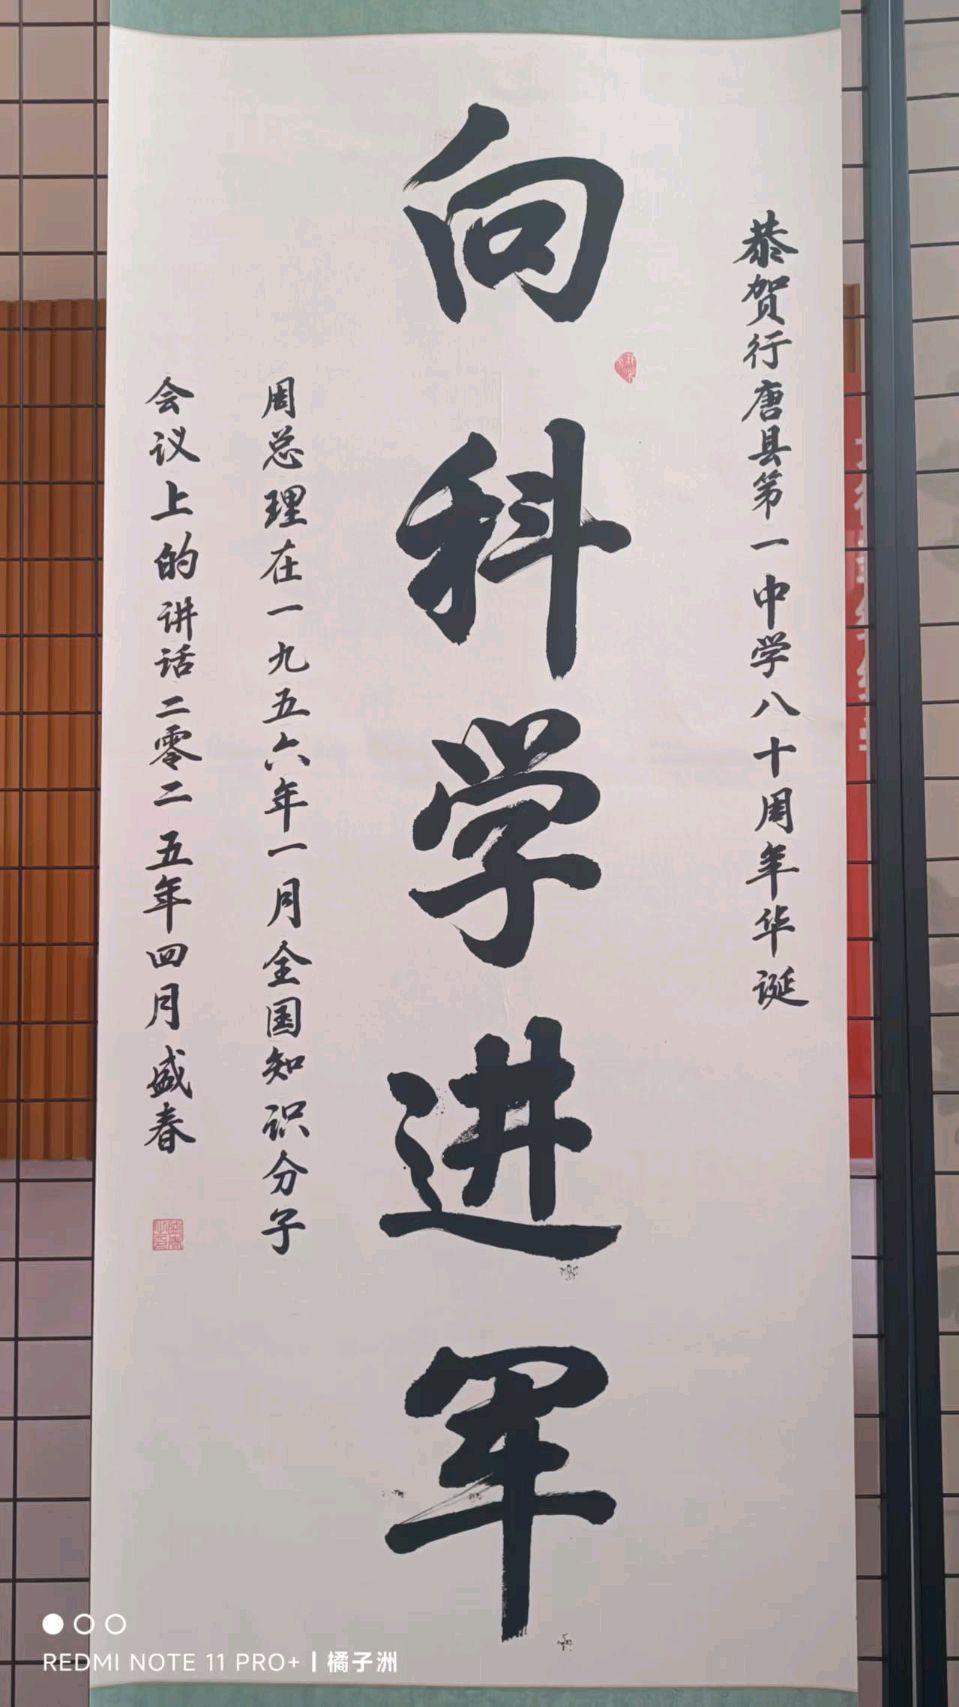 恭贺行唐县第一中学八十周年华诞
向科学进军
周总理在一九五六年一月全国知识分子
会议上的讲话二零二五年四月盛春
REDMI NOTE 11 PRO+ | 橘子洲